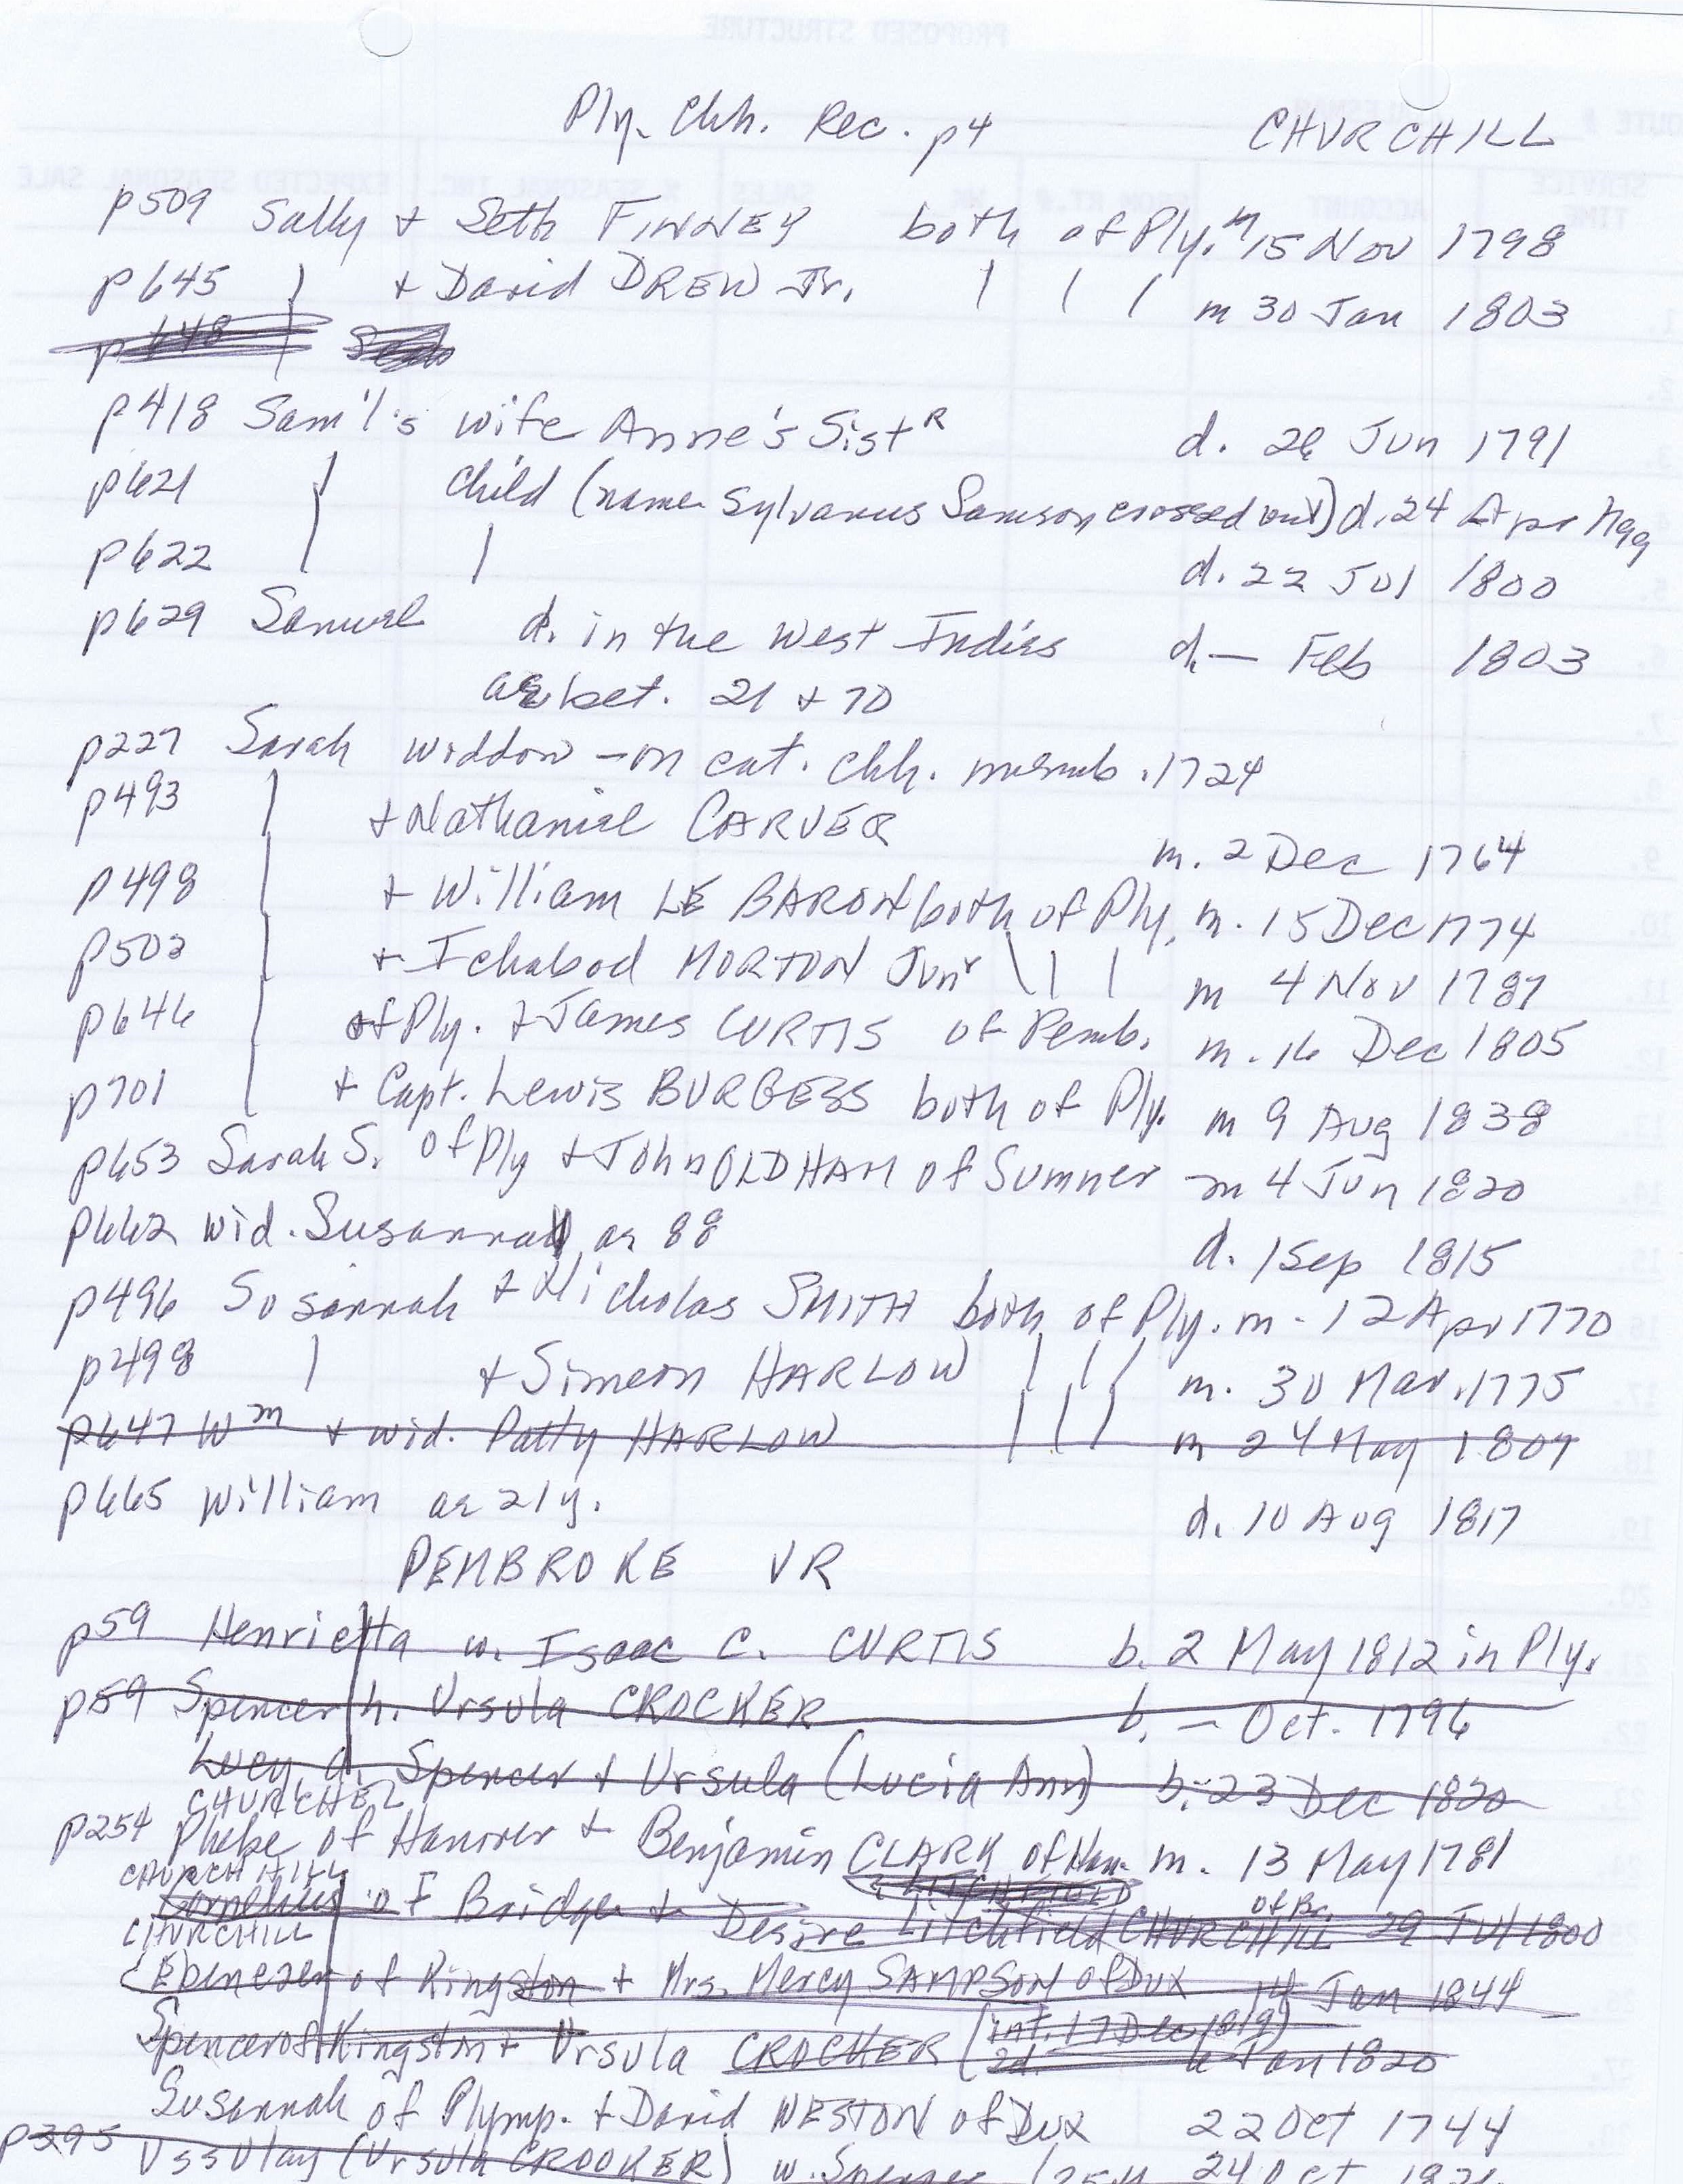 Ply. Chh. Rec. p4 CHURCHILL
p509 Sally + Seth FINNEY both of Ply. m 15 Nov 1798
p645 | + David DREW Jr. | | | m 30 Jan 1803
p648
p418 Sam'l's wife Anne's Sistr d. 28 Jun 1791
p621 | child (name Sylvanus Samson crossed out) d. 24 Apr 1799
p622 | | d. 22 Jul 1800
p629 Samuel d. in the West Indies d. — Feb 1803
ae bet. 21 + 70
p227 Sarah widdow – on cat. chh. memb. 1724
p493 | + Nathaniel CARVER m. 2 Dec 1764
p498 | + William LE BARON both of Ply. m. 15 Dec 1774
p503 | + Ichabod MORTON Junr | | | m 4 Nov 1787
p646 | of Ply. + James CURTIS of Pemb. m. 16 Dec 1805
p701 | + Capt. Lewis BURGESS both of Ply. m 9 Aug 1838
p653 Sarah S. of Ply + John OLDHAM of Sumner m 4 Jun 1820
p662 wid. Susannah ae 88 d. 1 Sep 1815
p496 Susannah + Nicholas SMITH both of Ply. m. 12 Apr 1770
p498 | + Simeon HARLOW | | | m. 30 Mar. 1775
p647 Wm + wid. Patty HARLOW | | | m 24 May 1807
p665 William ae 21y. d. 10 Aug 1817
PEMBROKE VR
p59 Henrietta w. Isaac C. CURTIS b. 2 May 1812 in Ply.
p59 Spencer h. Ursula CROCKER b. — Oct. 1796
Lucy d. Spencer + Ursula (Lucia Ann) b. 23 Dec 1820
CHURCHEL
p254 Phebe of Hanover + Benjamin CLARK of Han. m. 13 May 1781
CHURCH HILL LITCHFIELD
Cornelius of Bridge + Desire Litchfield CHURCHILL of Br. 29 Jul 1800
CHURCHILL
Ebenezer of Kingston + Mrs. Mercy SAMPSON of Dux 14 Jan 1844
Spencer of Kingston + Ursula CROCKER (int. 17 Dec 1819)
2d. 6 Jan 1820
Susannah of Plymp. + David WESTON of Dux 22 Oct 1744
p395 Ussulay (Ursula CROOKER) w. Spencer (25y 24 Oct